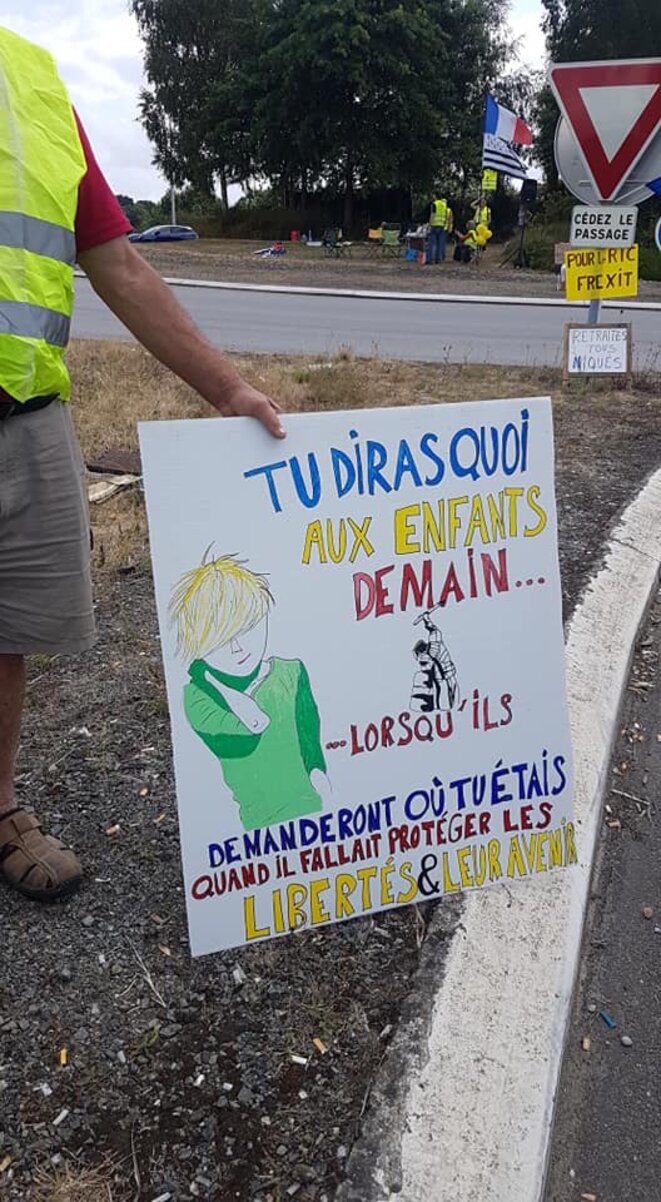 CÉDEZ LE
PASSAGE
POUR LE RIC
FREXIT
RETRAITES
TOUS
NIQUÉS
TU DIRAS QUOI
AUX ENFANTS
DEMAIN...
...LORSQU'ILS
DEMANDERONT OÙ TU ÉTAIS
QUAND IL FALLAIT PROTÉGER LES
LIBERTÉS & LEUR AVENIR